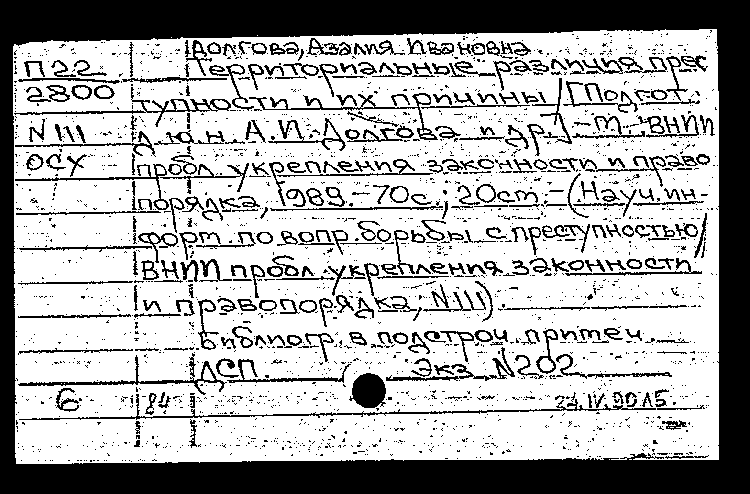 Долгова, Азалия Ивановна.
П22 Территориальные различия прес
2800 тупности и их причины / [Подгот.:
N III д.ю.н. А.И. Долгова и др.]. - М.: ВНИИ
ОСХ пробл. укрепления законности и право
порядка, 1989. - 70с.; 20см. - (Науч. ин-
форм. по вопр. борьбы с преступностью /
ВНИИ пробл. укрепления законности
и правопорядка; N III).
Библиогр. в подстроч. примеч.
ДСП. Экз. N202
6 84 24.IV.90